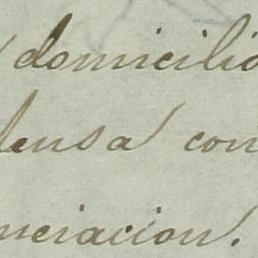 domicilio
fensa con
neracion.